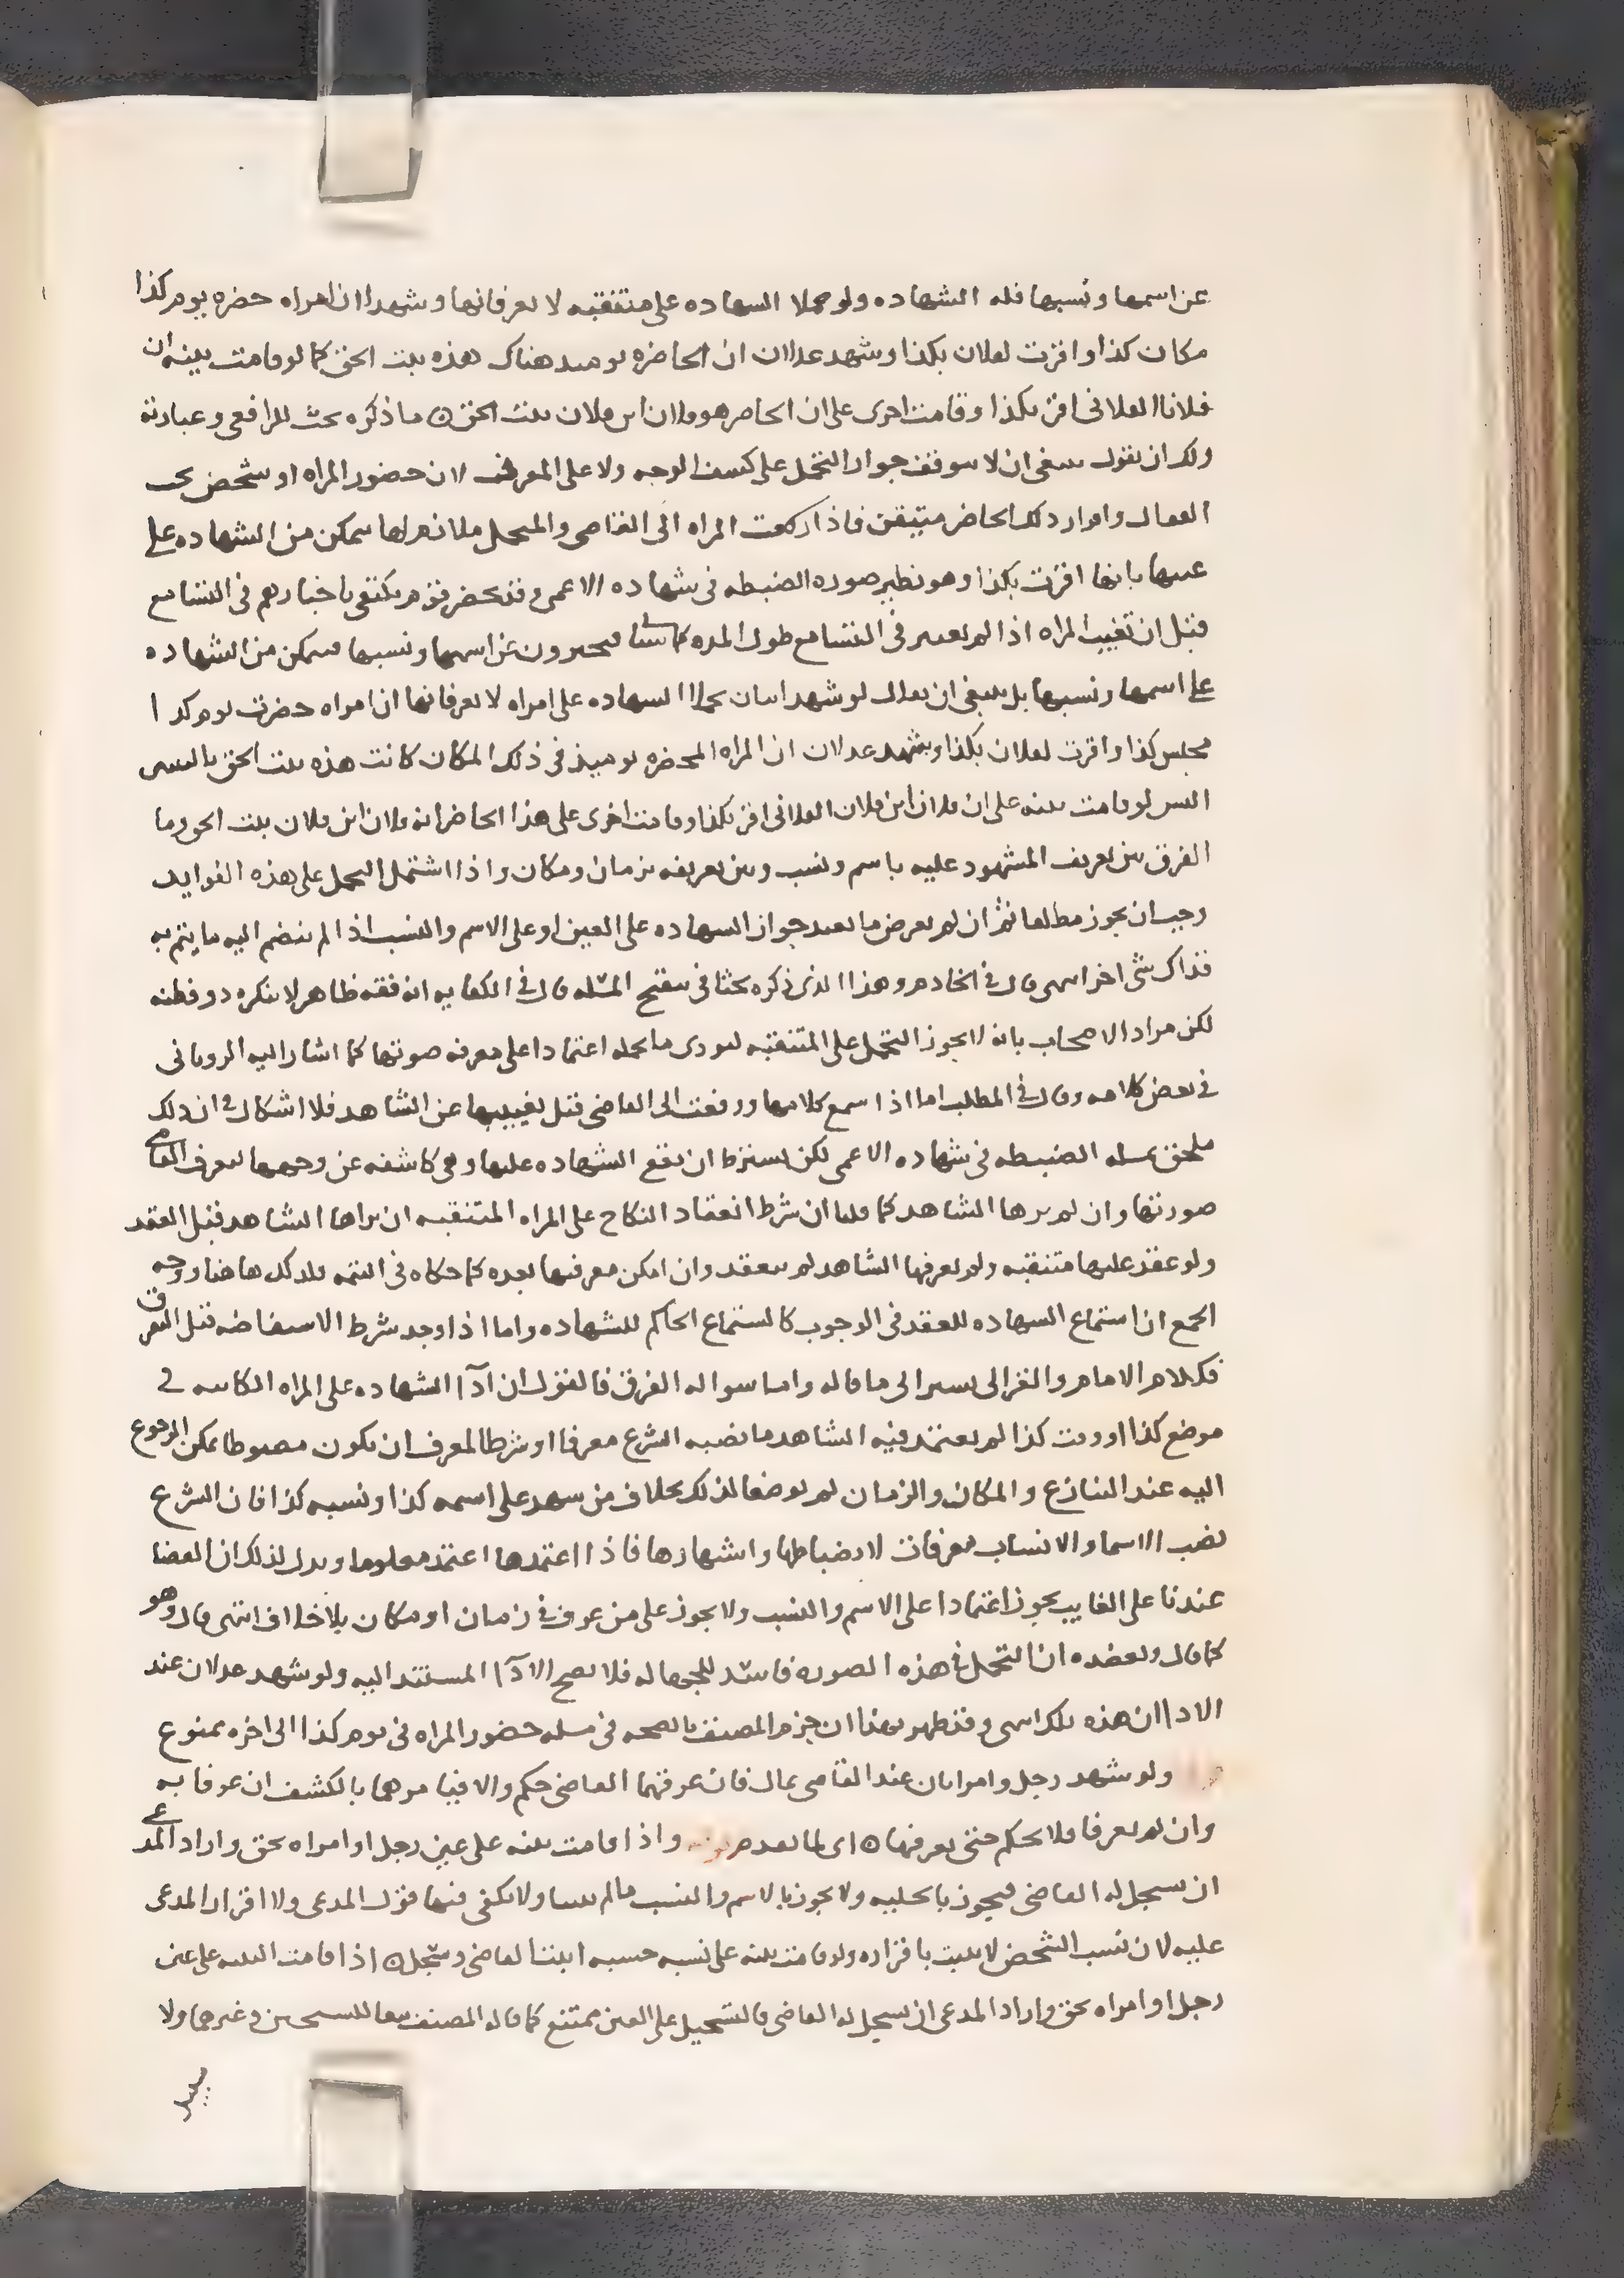 عن اسمها ونسبها فله الشهاده ولو تحملا الشهاده على متنقبه لا يعرفانها وشهدا ان امراه حضره يوم كذا
مكان كذا واقرت لفلان بكذا وشهد عدلان ان الحاضره يوميذ هناك هذه ثبت الحق كما لو قامت بينه ان
فلانا الفلاني اقر بكذا وقامت اخرى على ان الحاضر هو فلان ابن فلان ثبت الحق ما ذكره بحث للرافعي وعبارته
ولك ان تقول ينبغي ان لا يتوقف جواز التحمل على كشف الوجه ولا على المعرف لان حضور المراه او شخص تحت
النقاب واقرار ذلك الحاضر متيقن فاذا رفعت المراه الى القاضي والمتحمل ملازمها تمكن من الشهاده على
عينها بانها اقرت بكذا وهو نظير صوره الضبطه في شهاده الاعمى وقد تحضر قوم يكتفى باخبارهم في التسامع
قبل ان تغيب المراه اذا لم يعتبر في التسامع طول المده كما سياتي فيخبرون عن اسمها ونسبها فيتمكن من الشهاده
على اسمها ونسبها بل ينبغي ان يقال لو شهد اثنان تحملا الشهاده على امراه لا يعرفانها ان امراه حضرت يوم كذا
مجلس كذا واقرت لفلان بكذا ويشهد عدلان ان المراه المحضره يوميذ في ذلك المكان كانت هذه ثبت الحق بالبينتين
اليس لو قامت بينه على ان فلان ابن فلان الفلاني اقر بكذا وقامت اخرى على هذا الحاضر انه فلان ابن فلان يثبت الحق وما
الفرق بين تعريف المشهود عليه باسم ونسب وبين تعريفه بزمان ومكان واذا اشتمل التحمل على هذه الفوايد
وجب ان يجوز مطلقا ثم ان لم يعرض ما يفيد جواز الشهاده على العين او على الاسم والنسب اذا لم ينضم اليه ما يتم به
فذاك شي اخر انتهى قال في الخادم وهذا الذي ذكره بحثا في تنقيح المسله قال في الكفايه انه فقه ظاهر لا ينكره ذو فطنه
لكن مراد الاصحاب بانه لا يجوز التحمل على المتنقبه ليودي ما تحمله اعتمادا على معرفه صوتها كما اشار اليه الروياني
في بعض كلامه وقال في المطلب اما اذا سمع كلامها ورفعت الى القاضي قبل تغيبها عن الشاهد فلا اشكال في ان ذلك
ملحق بمسله الضبطه في شهاده الاعمى لكن يشترط ان تقع الشهاده عليها وهي كاشفه عن وجهها ليعرف القاضي
صورتها وان لم يرها الشاهد كما قلنا ان شرط انعقاد النكاح على المراه المتنقبه ان يراها الشاهد قبل العقد
ولو عقد عليها متنقبه ولم يعرفها الشاهد لم ينعقد وان امكن معرفتها بعده كما حكاه في التتمه فلذلك هاهنا ووجه
الجمع ان استماع الشهاده للعقد في الوجوب كاستماع الحاكم للشهاده واما اذا وجد شرط الاستفاضه قبل التفرق
فكلام الامام والغزالي يشير الى ما قاله واما سواله الفرق فالقول ان ادآ الشهاده على المراه الكاينه في
موضع كذا او وقت كذا لم يعتمد فيه الشاهد ما نصبه الشرع معرفا او شرط المعرف ان يكون مضبوطا يمكن الرجوع
اليه عند التنازع والمكان والزمان لم يوضعا لذلك بخلاف من شهد على اسمه كذا ونسبه كذا فان الشرع
نصب الاسما والانساب معرفات لانضباطها واشتهارها فاذا اعتمدها اعتمد معلوما ويدل لذلك ان القضا
عندنا على الغايب يجوز اعتمادا على الاسم والنسب ولا يجوز على من عرف في زمان او مكان بلا خلاف انتهى قال وهو
كما قال ويعضده ان التحمل في هذه الصوره فاسد للجهاله فلا يصح الادآ المستند اليه ولو شهد عدلان عند
الادا ان هذه تلك انتهى وقد ظهر بهذا ان جزم المصنف بالصحه في مسله حضور المراه في يوم كذا الى اخره ممنوع
ولو شهد رجل وامراتان عند القاضي بمال فان عرفتهما القاضي حكم والا فيامرهما بالكشف ان عرفا به
وان لم يعرفا فلا يحكم حتى يعرفهما اي لما بعد واذا قامت بينه على عين رجل او امراه بحق واراد المدعي
ان يسجل له القاضي فيجوز بالحليه ولا يجوز بالاسم والنسب مالم يثبتا ولا يكفي فيهما قول المدعي ولا اقرار المدعى
عليه لان نسب الشخص لا يثبت باقراره ولو قامت بينه على نسبه حسبه اثبتها القاضي وسجل اذا قامت البينه على عين
رجل او امراه بحق واراد المدعي ان يسجل له القاضي فالتسجيل على العين ممتنع كما قاله المصنف تبعا للشيخين وغيرهما ولا